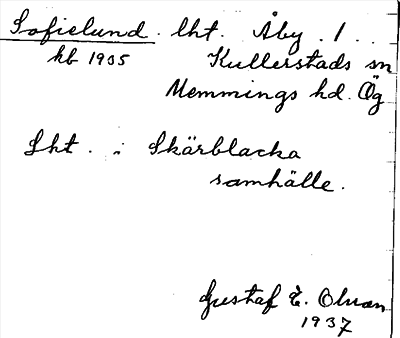 Sofielund. lht. Åby. 1...
kb 1935 Kullerstads sn
Memmings hd. Ög
Lht. i Skärblacka
samhälle.
Gustaf E. Olson
1937